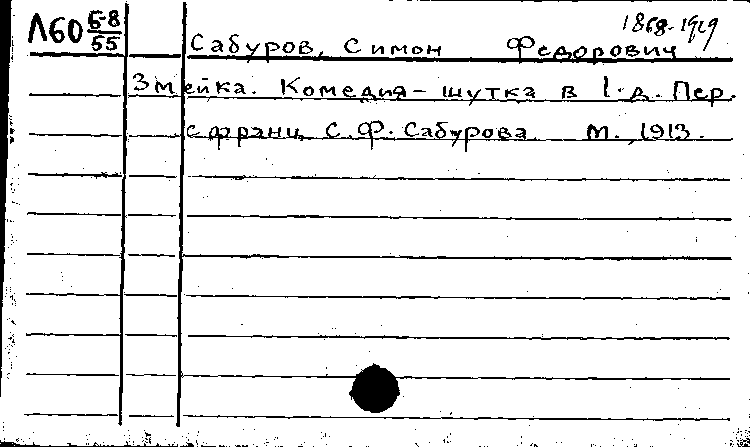 Л60 68/55
1868-1929
Сабуров, Симон Федорович
Змейка. Комедия-шутка в 1.д. Пер.
с франц. С.Ф. Сабурова. М., 1913.